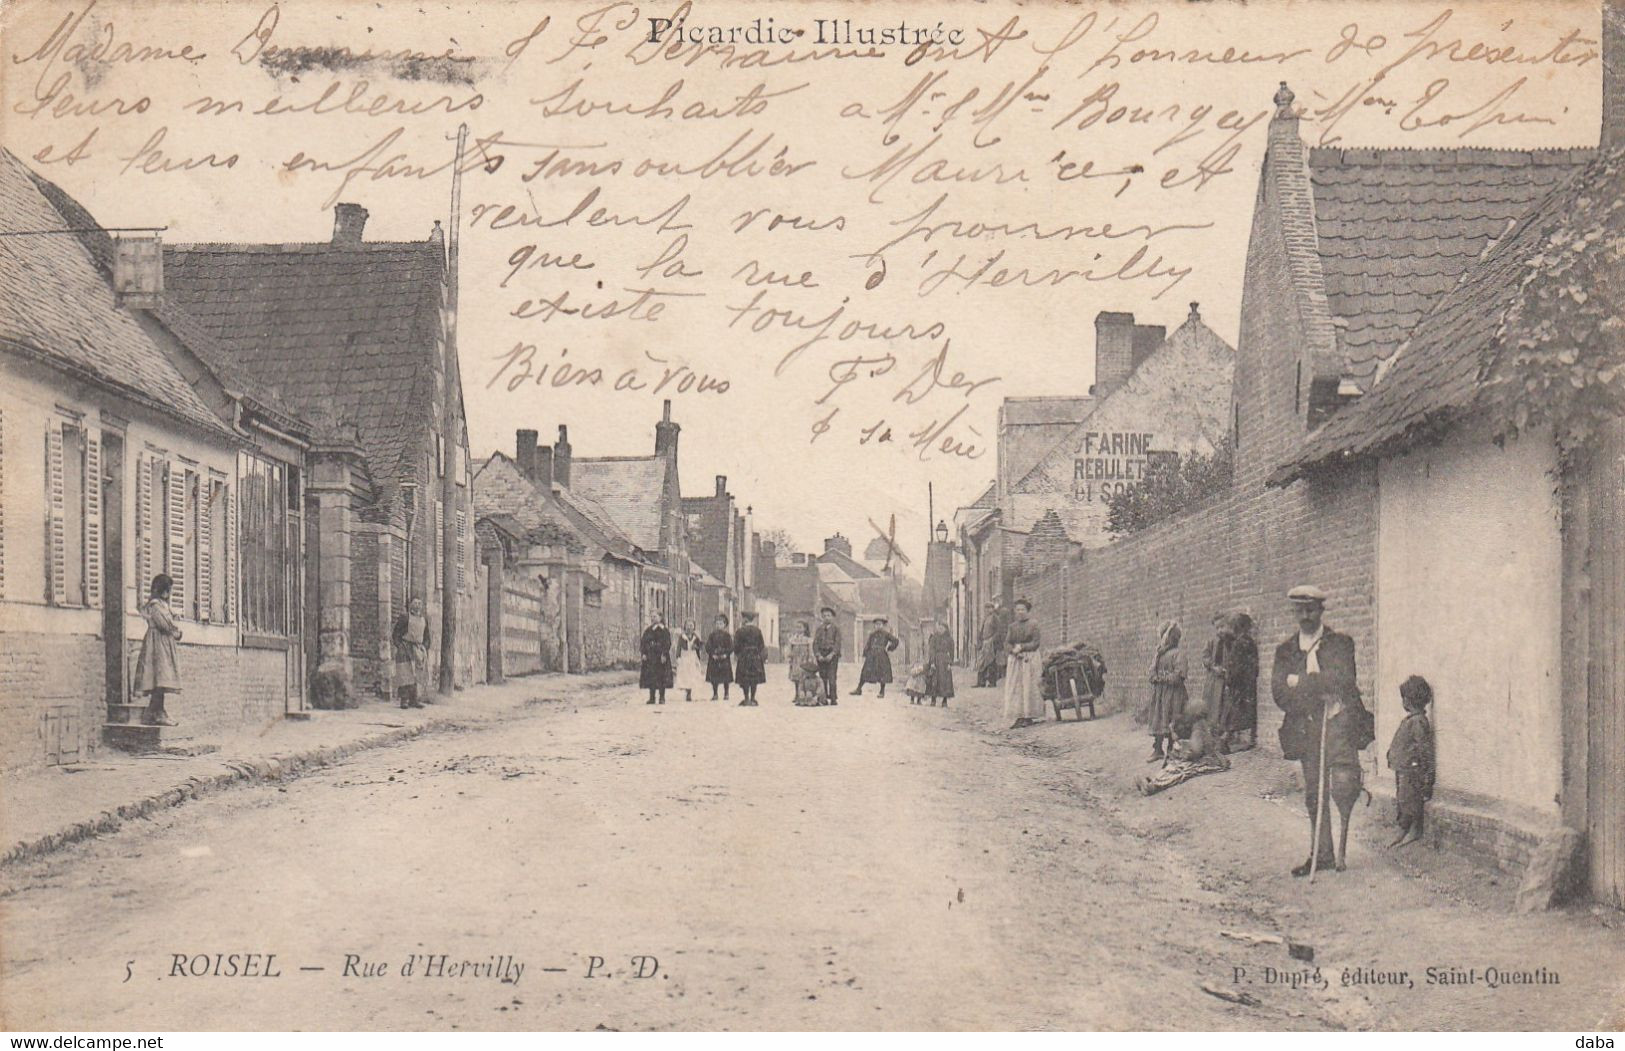 Picardie Illustrée
Madame & Fd. ont l'honneur de présenter
leurs meilleurs souhaits a Mr & Mme Bourgey à Mme
et leurs enfants sans oublier Maurice, et
veulent vous prouver
que la rue d'Hervilly
existe toujours
Biens à vous Fd Der
& sa Mère
FARINE
REBULET
et SON
5 ROISEL — Rue d'Hervilly — P. D.
P. Dupré, éditeur, Saint-Quentin
delcampe.net
daba